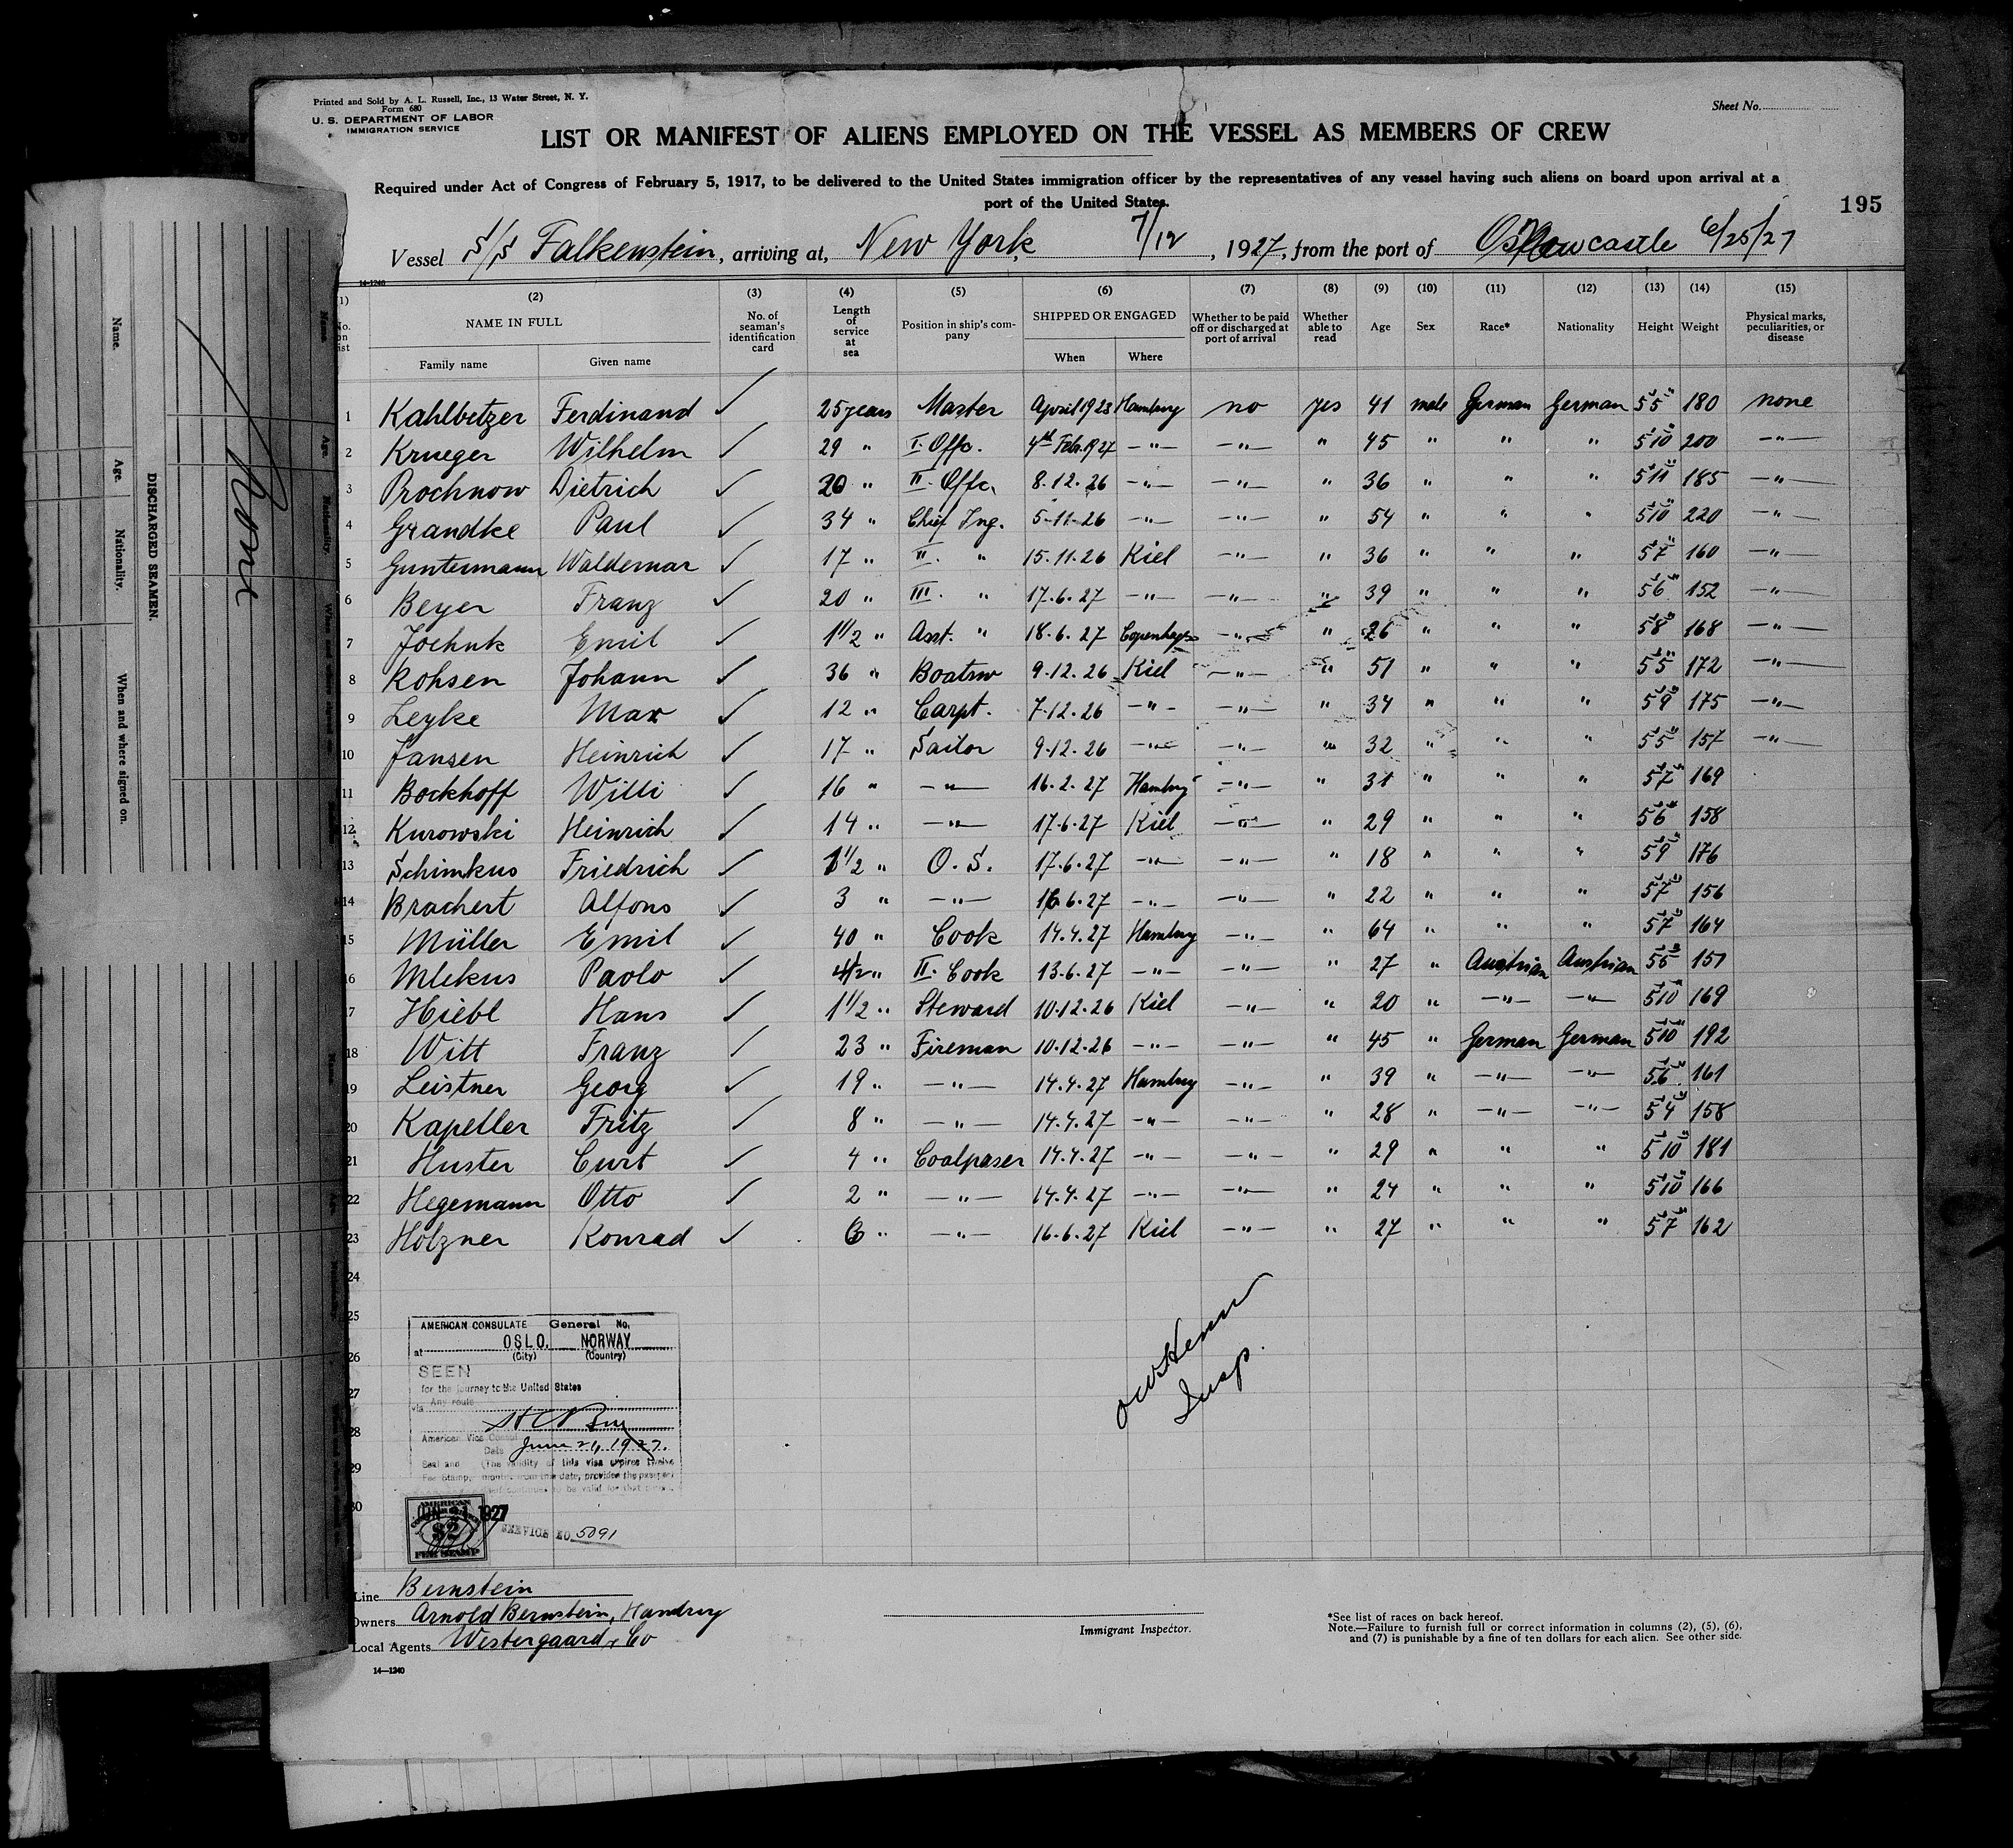 Printed and Sold by A. L. Russell, Inc., 13 Water Street, N. Y.
Form 680
U. S. DEPARTMENT OF LABOR
IMMIGRATION SERVICE
Sheet No.
LIST OR MANIFEST OF ALIENS EMPLOYED ON THE VESSEL AS MEMBERS OF CREW
Required under Act of Congress of February 5, 1917, to be delivered to the United States immigration officer by the representatives of any vessel having such aliens on board upon arrival at a
port of the United States.
195
Vessel S/S Falkenstein, arriving at, New York 7/12, 1927, from the port of Newcastle 6/25/27
14-1240
(1) (2) (3) (4) (5) (6) (7) (8) (9) (10) (11) (12) (13) (14) (15)
No. on list NAME IN FULL No. of seaman's identification card Length of service at sea Position in ship's company SHIPPED OR ENGAGED Whether to be paid off or discharged at port of arrival Whether able to read Age Sex Race* Nationality Height Weight Physical marks, peculiarities, or disease
Family name Given name When Where
1 Kahlbetzer Ferdinand ✓ 25 years Master April 1923 Hamburg no yes 41 male German German 5'5" 180 none
2 Krueger Wilhelm ✓ 29 " I. Offc. 4th Feb. 1927 —"— —"— " 45 " " " 5'10" 200 —"—
3 Prochnow Dietrich ✓ 20 " II. Offc. 8.12.26 —"— —"— " 36 " " " 5'11" 185 —"—
4 Grandke Paul ✓ 34 " Chief Ing. 5-11-26 —"— —"— " 54 " " " 5'10" 220 —"—
5 Guntermann Waldemar ✓ 17 " II. " 15.11.26 Kiel —"— " 36 " " " 5'7" 160 —"—
6 Beyer Franz ✓ 20 " III. " 17.6.27 —"— —"— " 39 " " " 5'6" 152 —"—
7 Jochnk Emil ✓ 1 1/2 " Asst. " 18.6.27 Copenhagen —"— " 26 " " " 5'8" 168 —"—
8 Rohsen Johann ✓ 36 " Boatsw 9.12.26 Kiel —"— " 51 " " " 5'5" 172 —"—
9 Leyke Max ✓ 12 " Carpt. 7.12.26 —"— —"— " 34 " " " 5'9" 175 —"—
10 Jansen Heinrich ✓ 17 " Sailor 9.12.26 —"— —"— " 32 " " " 5'5" 157 —"—
11 Bockhoff Willi ✓ 16 " —"— 16.2.27 Hamburg —"— " 31 " " " 5'7" 169
12 Kurowski Heinrich ✓ 14 " —"— 17.6.27 Kiel —"— " 29 " " " 5'6" 158
13 Schimkus Friedrich ✓ 1 1/2 " O.S. 17.6.27 —"— —"— " 18 " " " 5'9" 176
14 Brachert Alfons ✓ 3 " —"— 16.6.27 —"— —"— " 22 " " " 5'7" 156
15 Müller Emil ✓ 40 " Cook 14.4.27 Hamburg —"— " 64 " " " 5'7" 164
16 Mlekus Paolo ✓ 4 1/2 " II. Cook 13.6.27 —"— —"— " 27 " Austrian Austrian 151
17 Hiebl Hans ✓ 1 1/2 " Steward 10.12.26 Kiel —"— " 20 " —"— —"— 5'10" 169
18 Witt Franz ✓ 23 " Fireman 10.12.26 —"— —"— " 45 " German German 5'10" 192
19 Leistner Georg ✓ 19 " —"— 14.4.27 Hamburg —"— " 39 " —"— —"— 5'6" 161
20 Kapeller Fritz ✓ 8 " —"— 14.4.27 —"— —"— " 28 " —"— —"— 5'4" 158
21 Huster Curt ✓ 4 " Coalpaser 14.4.27 —"— —"— " 29 " " " 5'10" 181
22 Hegemann Otto ✓ 2 " —"— 14.4.27 —"— —"— " 24 " " " 5'10" 166
23 Holzner Konrad ✓ 6 " —"— 16.6.27 Kiel —"— " 27 " " " 5'7" 162
24
25
26
27
28
29
30
AMERICAN CONSULATE General No.
at OSLO, NORWAY
(City) (Country)
SEEN
for the journey to the United States
via Any route
American Vice Consul
Date June 21, 1927.
Seal and Fee Stamp. (The validity of this visa expires twelve months from this date, provided the passport continues to be valid for that
AMERICAN
$2
FEE STAMP
1927
SERVICE NO. 5091
Insp.
Line Bernstein
Owners Arnold Bernstein, Hamburg
Local Agents Westergaard & Co
Immigrant Inspector.
*See list of races on back hereof.
Note.—Failure to furnish full or correct information in columns (2), (5), (6),
and (7) is punishable by a fine of ten dollars for each alien. See other side.
14—1240
DISCHARGED SEAMEN.
Name. Age. Nationality. When and where signed on.
None